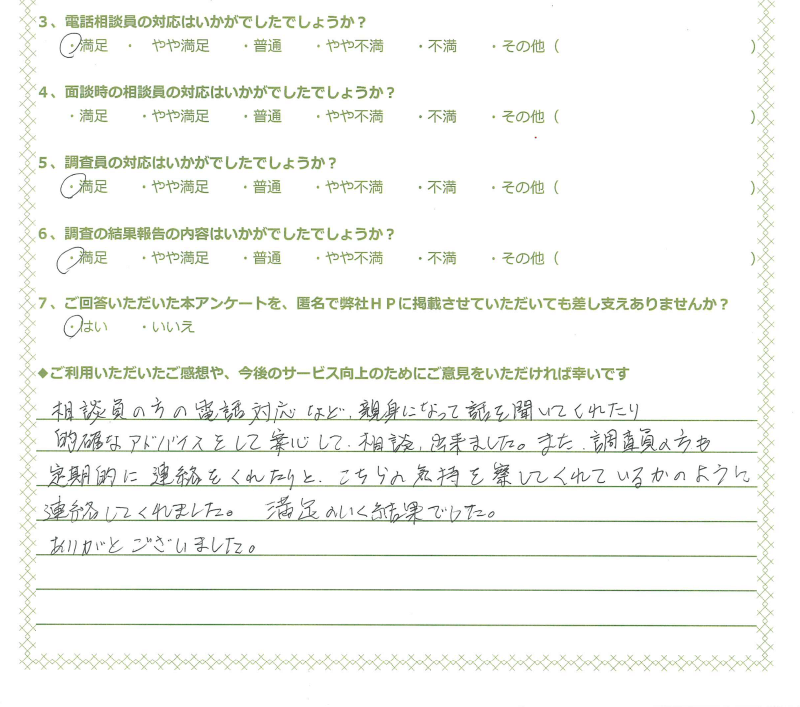 3、電話相談員の対応はいかがでしたでしょうか？
・満足 ・ やや満足 ・普通 ・やや不満 ・不満 ・その他（ ）
4、面談時の相談員の対応はいかがでしたでしょうか？
・満足 ・やや満足 ・普通 ・やや不満 ・不満 ・その他（ ）
5、調査員の対応はいかがでしたでしょうか？
・満足 ・やや満足 ・普通 ・やや不満 ・不満 ・その他（ ）
6、調査の結果報告の内容はいかがでしたでしょうか？
・満足 ・やや満足 ・普通 ・やや不満 ・不満 ・その他（ ）
7、ご回答いただいた本アンケートを、匿名で弊社ＨＰに掲載させていただいても差し支えありませんか？
・はい ・いいえ
◆ご利用いただいたご感想や、今後のサービス向上のためにご意見をいただければ幸いです
相談員の方の電話対応など、親身になって話を聞いてくれたり
的確なアドバイスをして安心して、相談、出来ました。また、調査員の方も
定期的に連絡をくれたりと、こちらの気持を察してくれているかのように
連絡してくれました。 満足のいく結果でした。
ありがとございました。